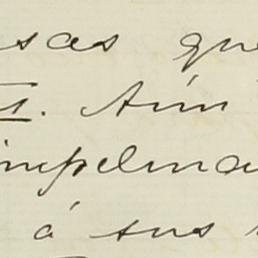 sas que
s. Aún
impelma
á sus